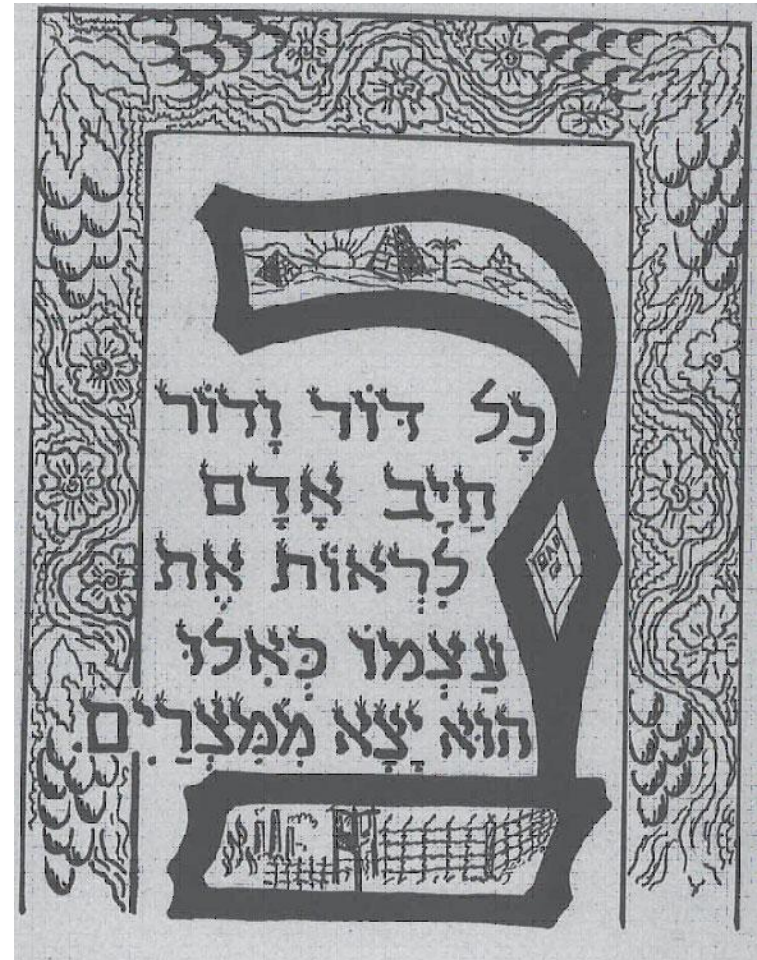 בכָל דּוֹר וָדוֹר
חַיָב אָדָם
לִרְאוֹת אֶת
עַצְמוֹ כְּאִלוּ
הוּא יָצָא מִמִצְרַיִם.